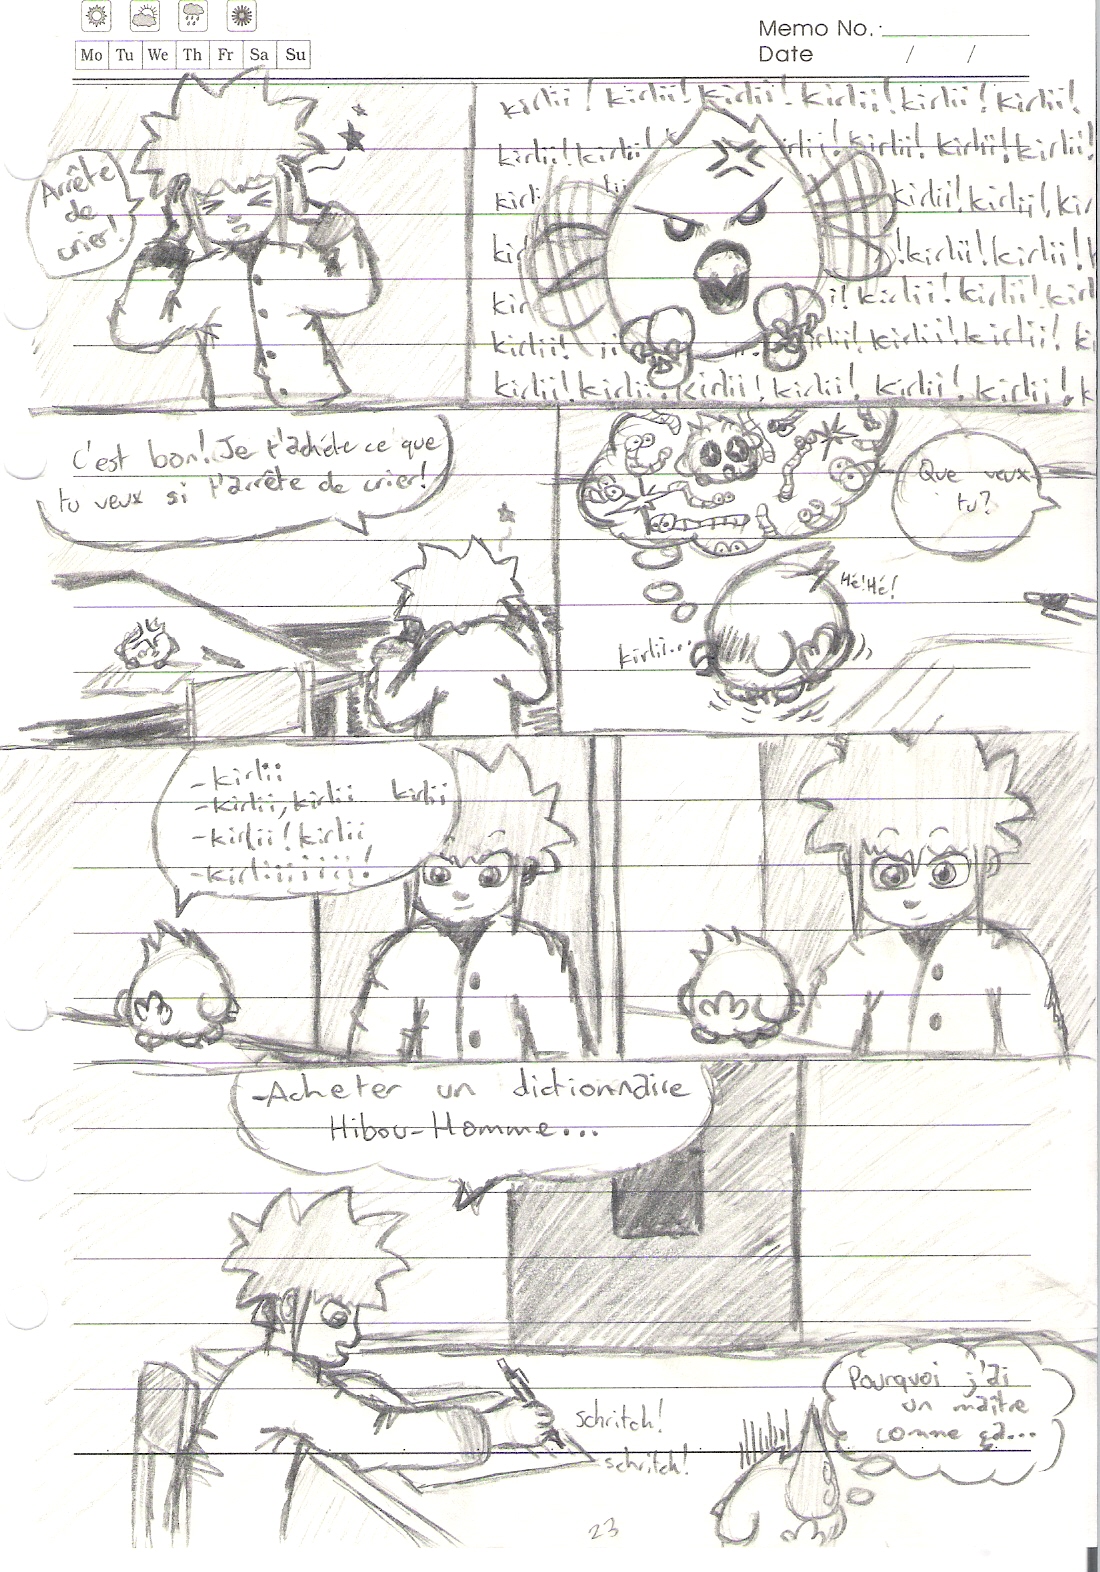 Memo No.
Mo Tu We Th Fr Sa Su
Date / /
Arrête
de
crier!
kirlii! kirlii! kirlii! kirlii! kirlii! kirlii!
kirlii! kirlii! kirlii! kirlii! kirlii! kirlii!
kirlii! kirlii!
kirlii! kirlii!
kirlii! kirlii!
kirlii! kirlii! kirlii! kirlii!
kirlii! kirlii! kirlii! kirlii! kirlii! kirlii!
C'est bon! Je t'achète ce que
tu veux si t'arrête de crier!
Que veux
tu?
Hé! Hé!
kirlii...
-kirlii
-kirlii, kirlii kirlii
-kirlii! kirlii
-kirliiiiiii!
-Acheter un dictionnaire
Hibou-Homme...
schritch!
schritch!
Pourquoi j'ai
un maître
comme ça...
23